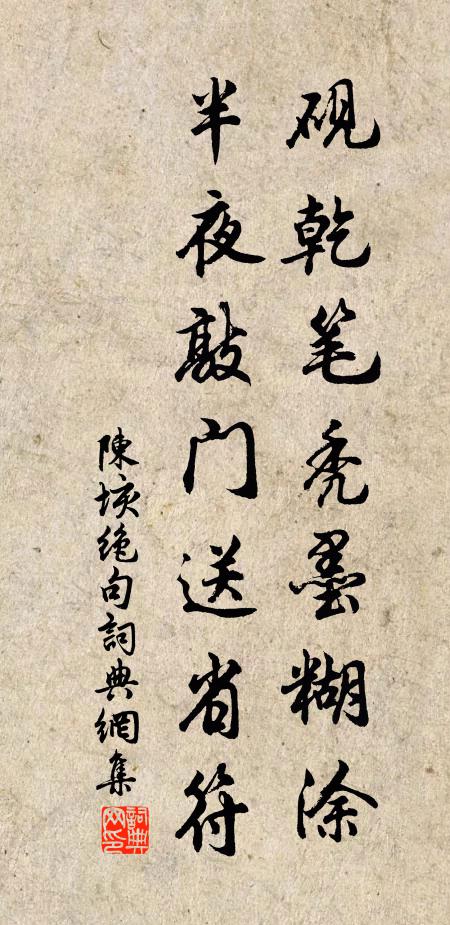 砚乾笔秃墨糊涂
半夜敲门送省符
陳垓绝句詞典網集
詞典网印